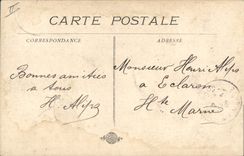 II
CARTE POSTALE
CORRESPONDANCE
ADRESSE
Bonnes amities
a tous
H. Alips
Monsieur Henri Alips
a Eclaron
Hte Marne